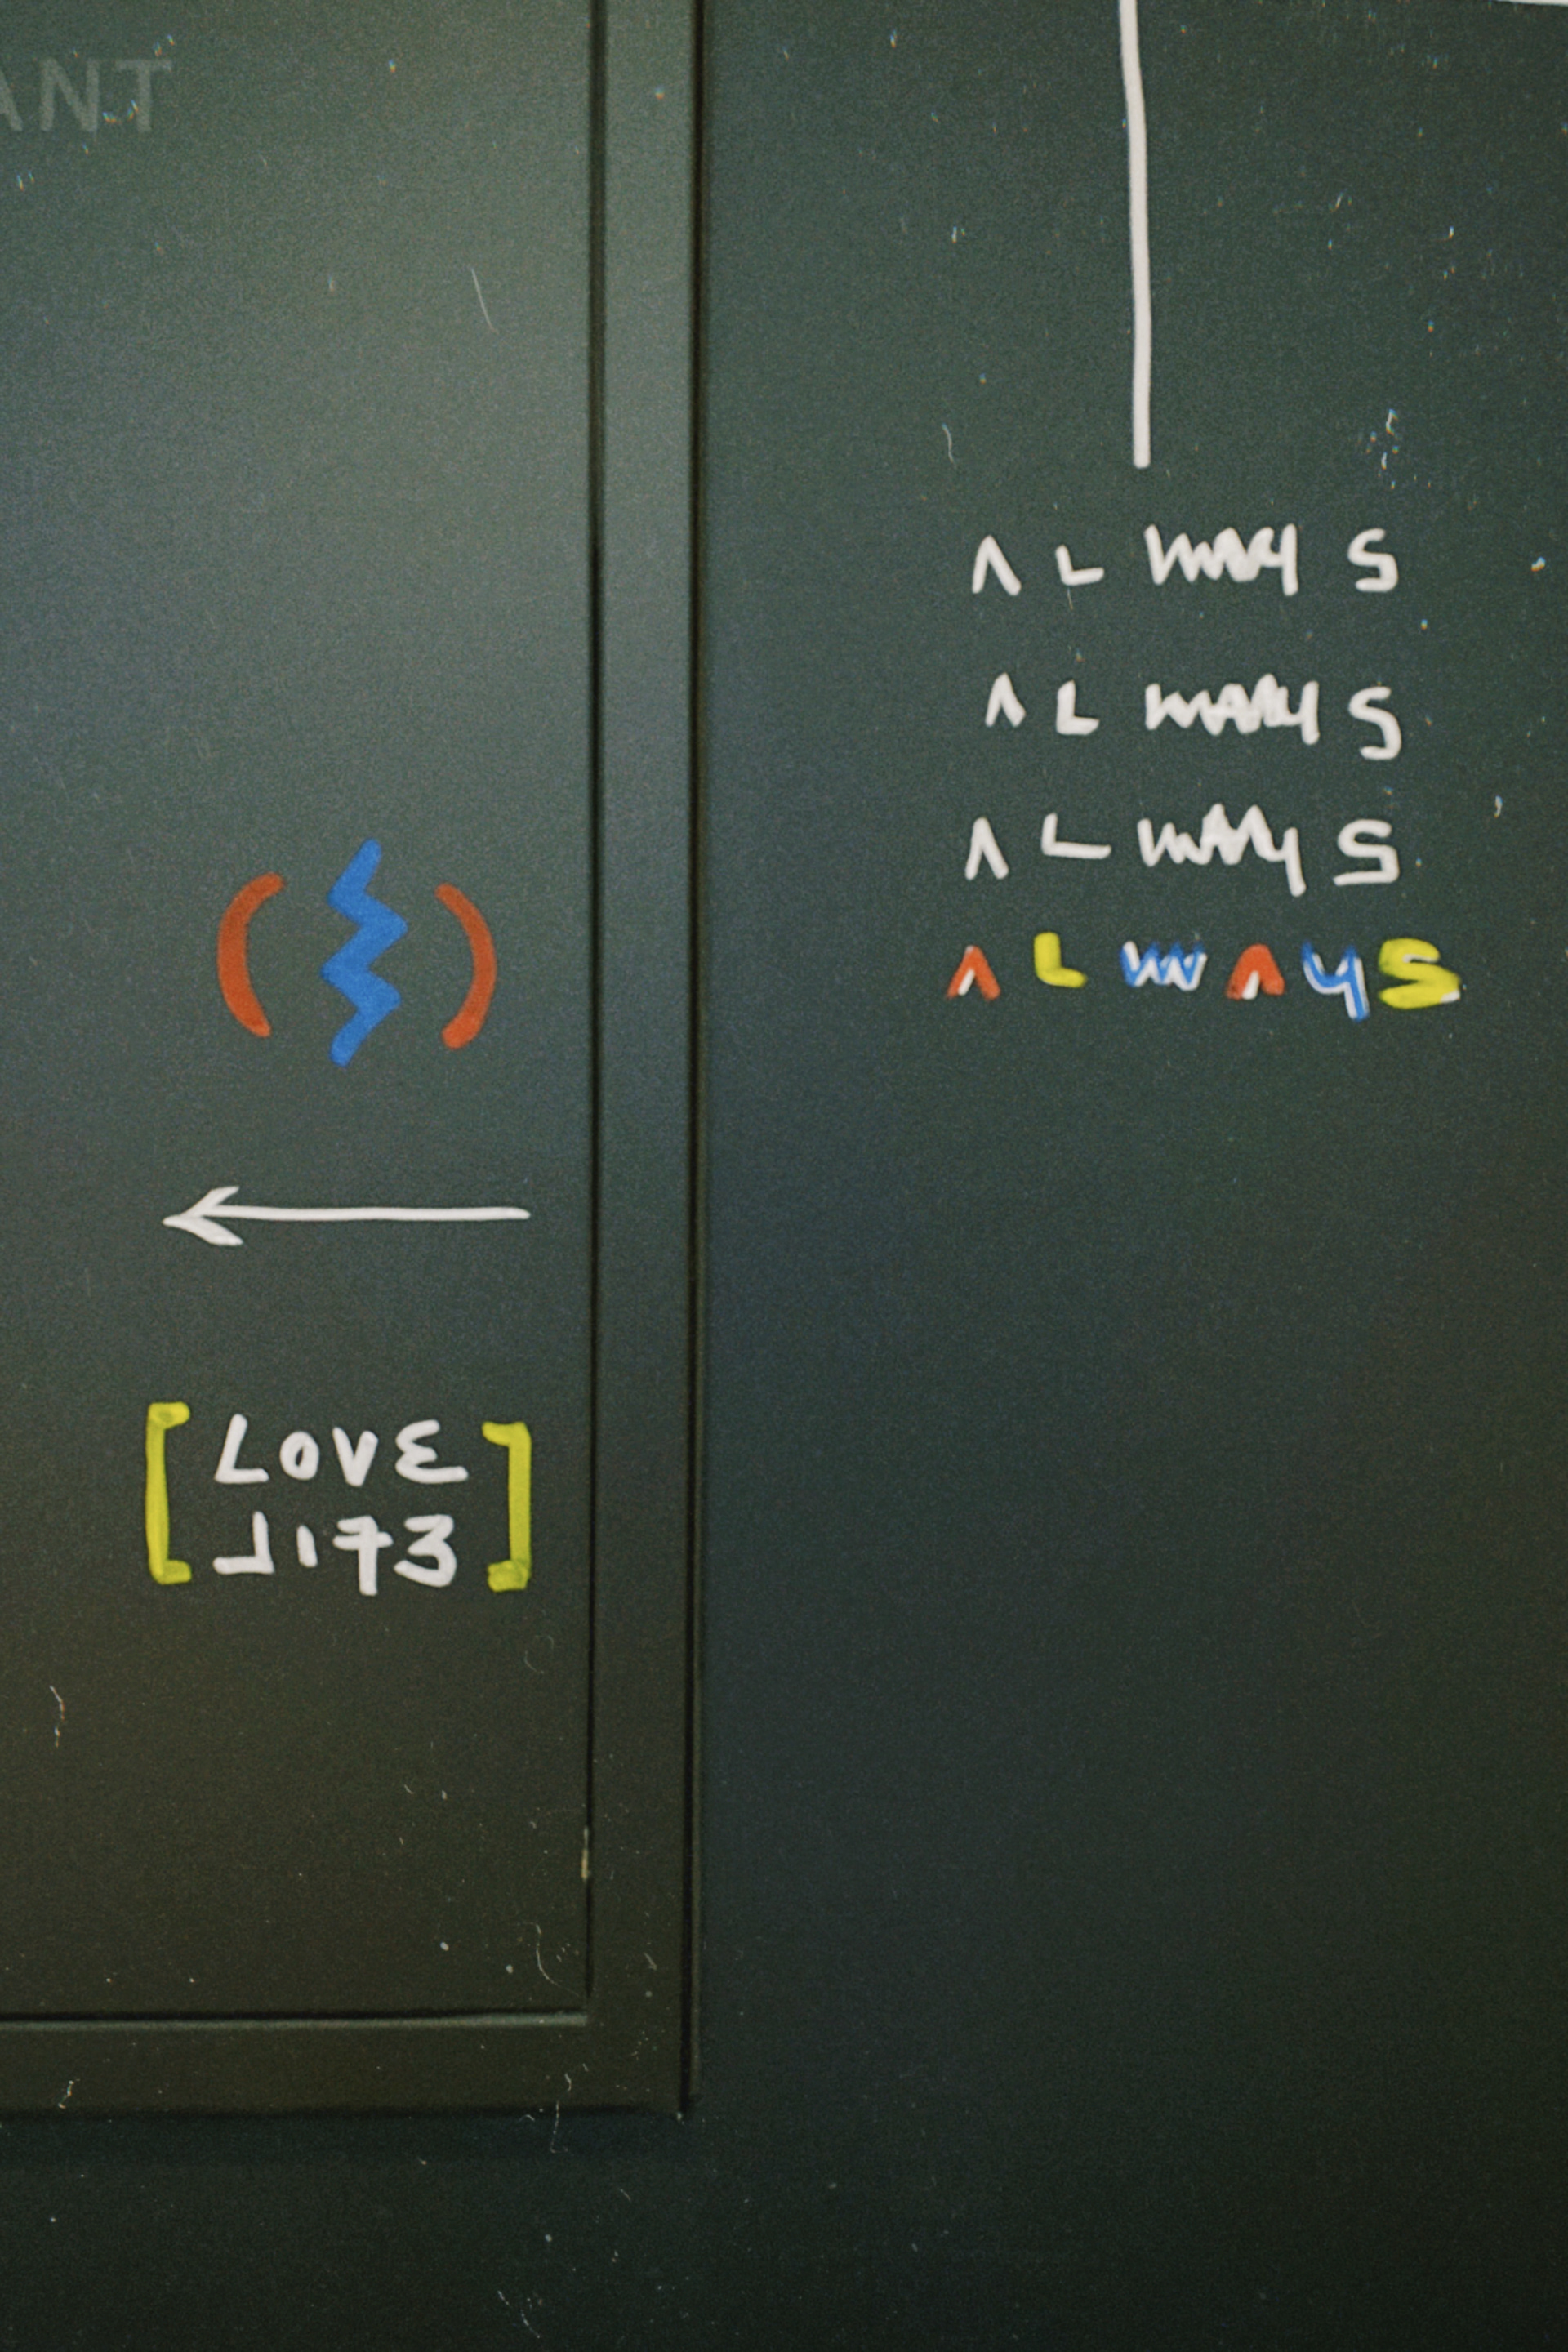 ANT
ALWAYS
ALWAYS
ALWAYS
ALWAYS
[LOVE
LIFE]